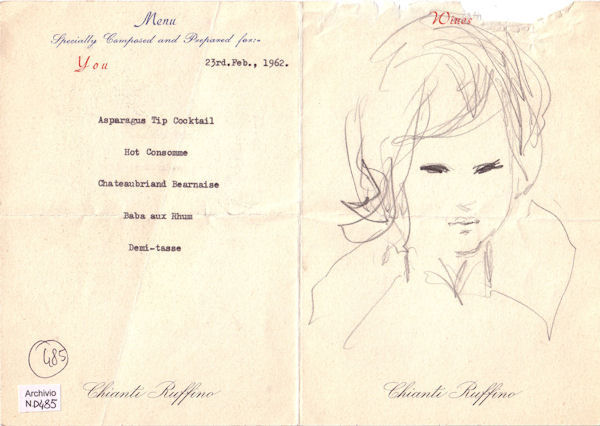 Menu
Specially Composed and Prepared for:-
You
23rd.Feb., 1962.
Asparagus Tip Cocktail
Hot Consomme
Chateaubriand Bearnaise
Baba aux Rhum
Demi-tasse
485
Archivio
N.D485
Chianti Ruffino
Wines
Chianti Ruffino